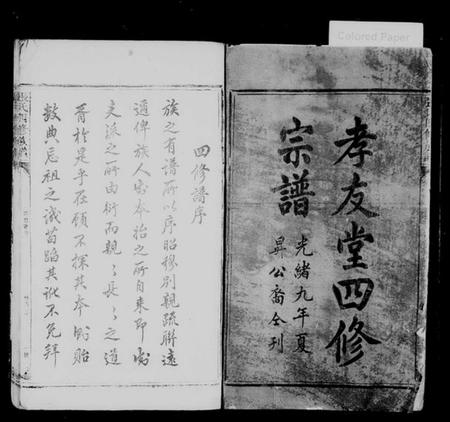 Colored Paper
孝友堂四修
宗譜
光緒九年夏
昇公裔仝刊
四修譜序
族之有譜所以序昭穆別親疏聯遠
適俾族人知本治之所自来即知
支派之所由衍而親〻長〻之道
胥於是乎在顧不探其本則貽
數典忘祖之誠苟蹈其訛不免拜